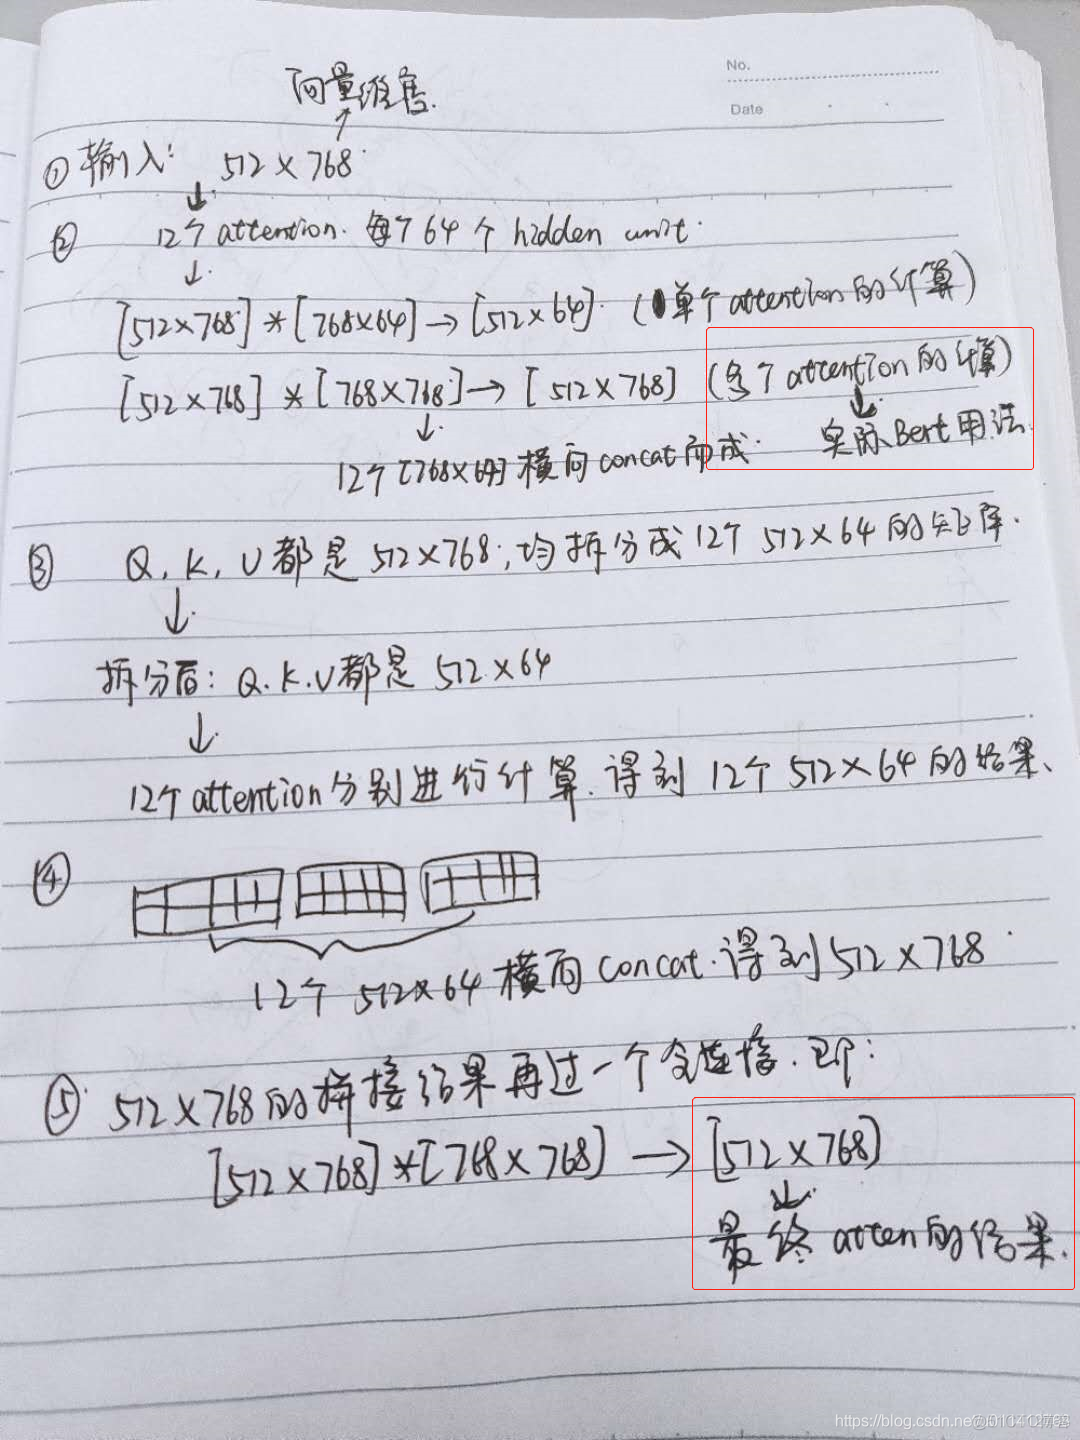 No.
Date
向量维度
↑
① 输入: 512×768
↓
② 12个attention. 每个64个hidden unit.
↓
[512×768]*[768×64]→[512×64]. (单个attention的计算)
[512×768]*[768×768]→[512×768] (多个attention的计算)
↓ ↓
12个[768×64]横向concat而成. 实际Bert用法
③ Q, K, V都是512×768, 均拆分成12个512×64的矩阵.
↓
拆分后: Q.K.V都是512×64
↓
12个attention分别进行计算.得到12个512×64的结果.
④
12个512×64横向concat.得到512×768
⑤ 512×768的拼接结果再过一个全连接.即:
[512×768]*[768×768]→[512×768]
↓
最终atten的结果.
https://blog.csdn.ne